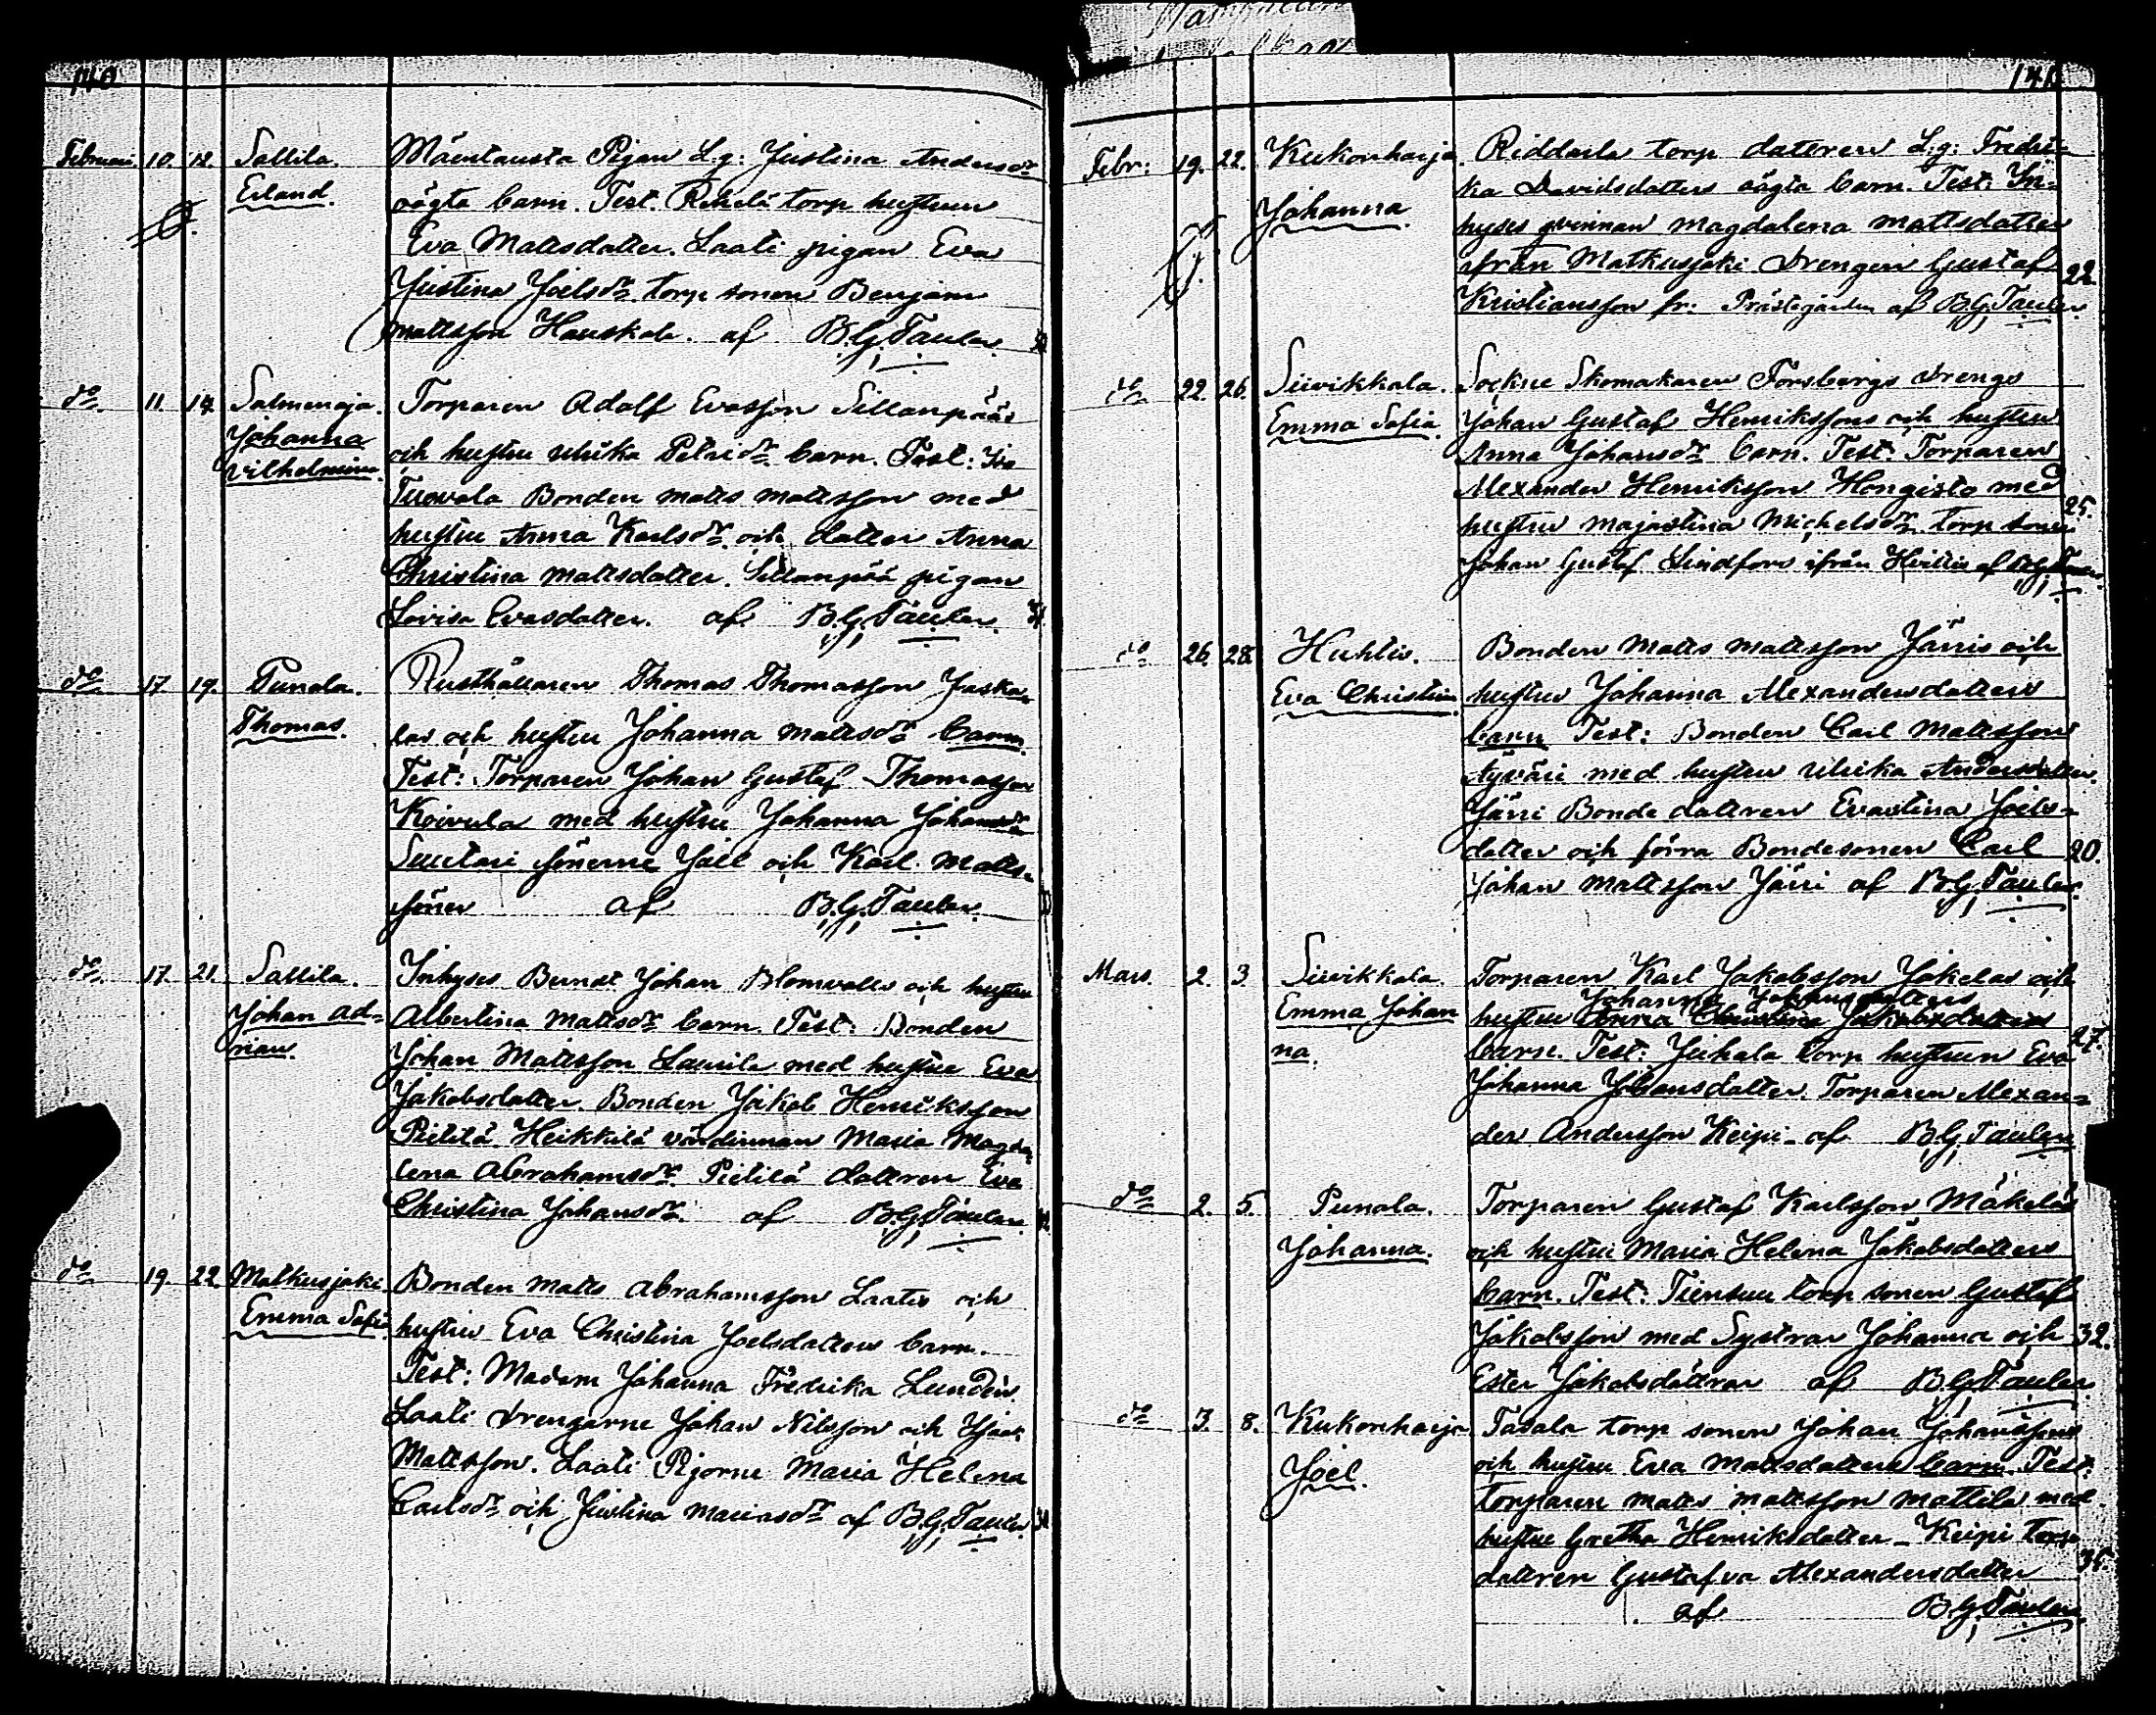 140.
Februari 10. 12. Sallila. Mäentausta Pigan L.g: Justina Andersdr
Erland. oägta barn. Test. Rekelä torp hustrun
Eva Mattsdatter. Laati pigan Eva
Justina Joelsdr torp sonen Benjam
Mattsson Hauskala. af B.G. Tauler.
do 11. 14. Salmenoja. Torparen Adolf Evasson Sillanpääs
Johanna och hustru Ulrika Petrisdr barn. Test:
Vilhelmina. Tuovala Bonden Matts Mattsson med
hustru Anna Karlsdr och datter Anna
Christina Mattsdatter. Sillanpää pigan
Lovisa Evasdatter. af B.G. Tauler.
do 17 19. Punola. Rusthållaren Thomas Thomasson Jaska-
Thomas. las och hustru Johanna Mattsdr barn.
Test: Torparen Johan Gustaf Thomasson
Koivula med hustru Johanna Johansdr
Suutari sönerne Joel och Karl Matts-
söner af B.G. Tauler.
do 17. 21. Sallila. Inhyses Bundt Johan Blomvalls och hustru
Johan Ad- Albertina Mattsdr barn. Test: Bonden
rian. Johan Mattsson Laurila med hustru Eva
Jakobsdatter. Bonden Jakob Henriksson
Pietilä Heikkilä värdinnan Maria Magda-
lena Abrahamsdr. Pietilä dattren Eva
Christina Johansdr. af B.G. Tauler.
do 19. 22. Matkusjoki. Bonden Matts Abrahamsson Laatis och
Emma Sofia hustru Eva Christina Joelsdatters barn.
Test: Madam Johanna Fredrika Lundén
Laati drengarne Johan Nilsson och Isaak
Mattsson. Laati Pigorne Maria Helena
Carlsdr och Justina Mariasdr af B.G. Tauler
141
Febr: 19. 22. Kukonharja. Riddarla torp dattren L.g: Fredri-
Johanna. ka Davidsdatters oägta barn. Test: In-
hyses qvinnan Magdalena Mattsdatter
ifrån Matkusjoki drengen Gustaf 22.
Kristiansson fr: Prästegården af B.G. Tauler.
do 22. 26. Siivikkala. Sockne Skomakaren Forsbergs drengs
Emma Sofia. Johan Gustaf Henrikssons och hustru
Anna Johansdr barn. Test: Torparen
Alexander Henriksson Hongisto med 25.
hustru Majastina Michelsdr torp sonen
Johan Gustaf Lindfors ifrån Hvittis af B.G. Tauler.
do 26. 28. Huhtis. Bonden Matts Mattsson Järris och
Eva Christina. hustru Johanna Alexandersdatters
barn Test: Bonden Carl Mattsson
Äyväri med hustru Ulrika Andersdatter.
Järri Bonde dattren Evastina Joels-
datter och förra Bondesonen Carl 20.
Johan Mattsson Järri af B.G. Tauler.
Mars. 2. 3. Siivikkala. Torparen Karl Jakobsson Jakelas och
Johanna Johansdatters
Emma Johan hustru Anna Christina Jakobsdatters
na. barn. Test: Juhala torp hustrun Eva 27.
Johanna Johansdatter. Torparen Alexan-
der Andersson Keipi af B.G. Tauler
do 2. 5. Punola. Torparen Gustaf Karlsson Mäkeläs
Johanna. och hustru Maria Helena Jakobsdatters
barn. Test: Tiensuu torp sonen Gustaf
Jakobsson med Systrar Johanna och 32.
Ester Jakobsdöttrar af B.G. Tauler.
do 3. 8. Kukonharja Tasala torp sonen Johan Johanssons
Joel. och hustru Eva Mattsdatters barn. Test:
torparen Matts Mattsson Mattila med
hustru Gretha Henriksdatter - Keipi torp
dattren Gustafva Alexandersdatter 35.
af B.G. Tauler.